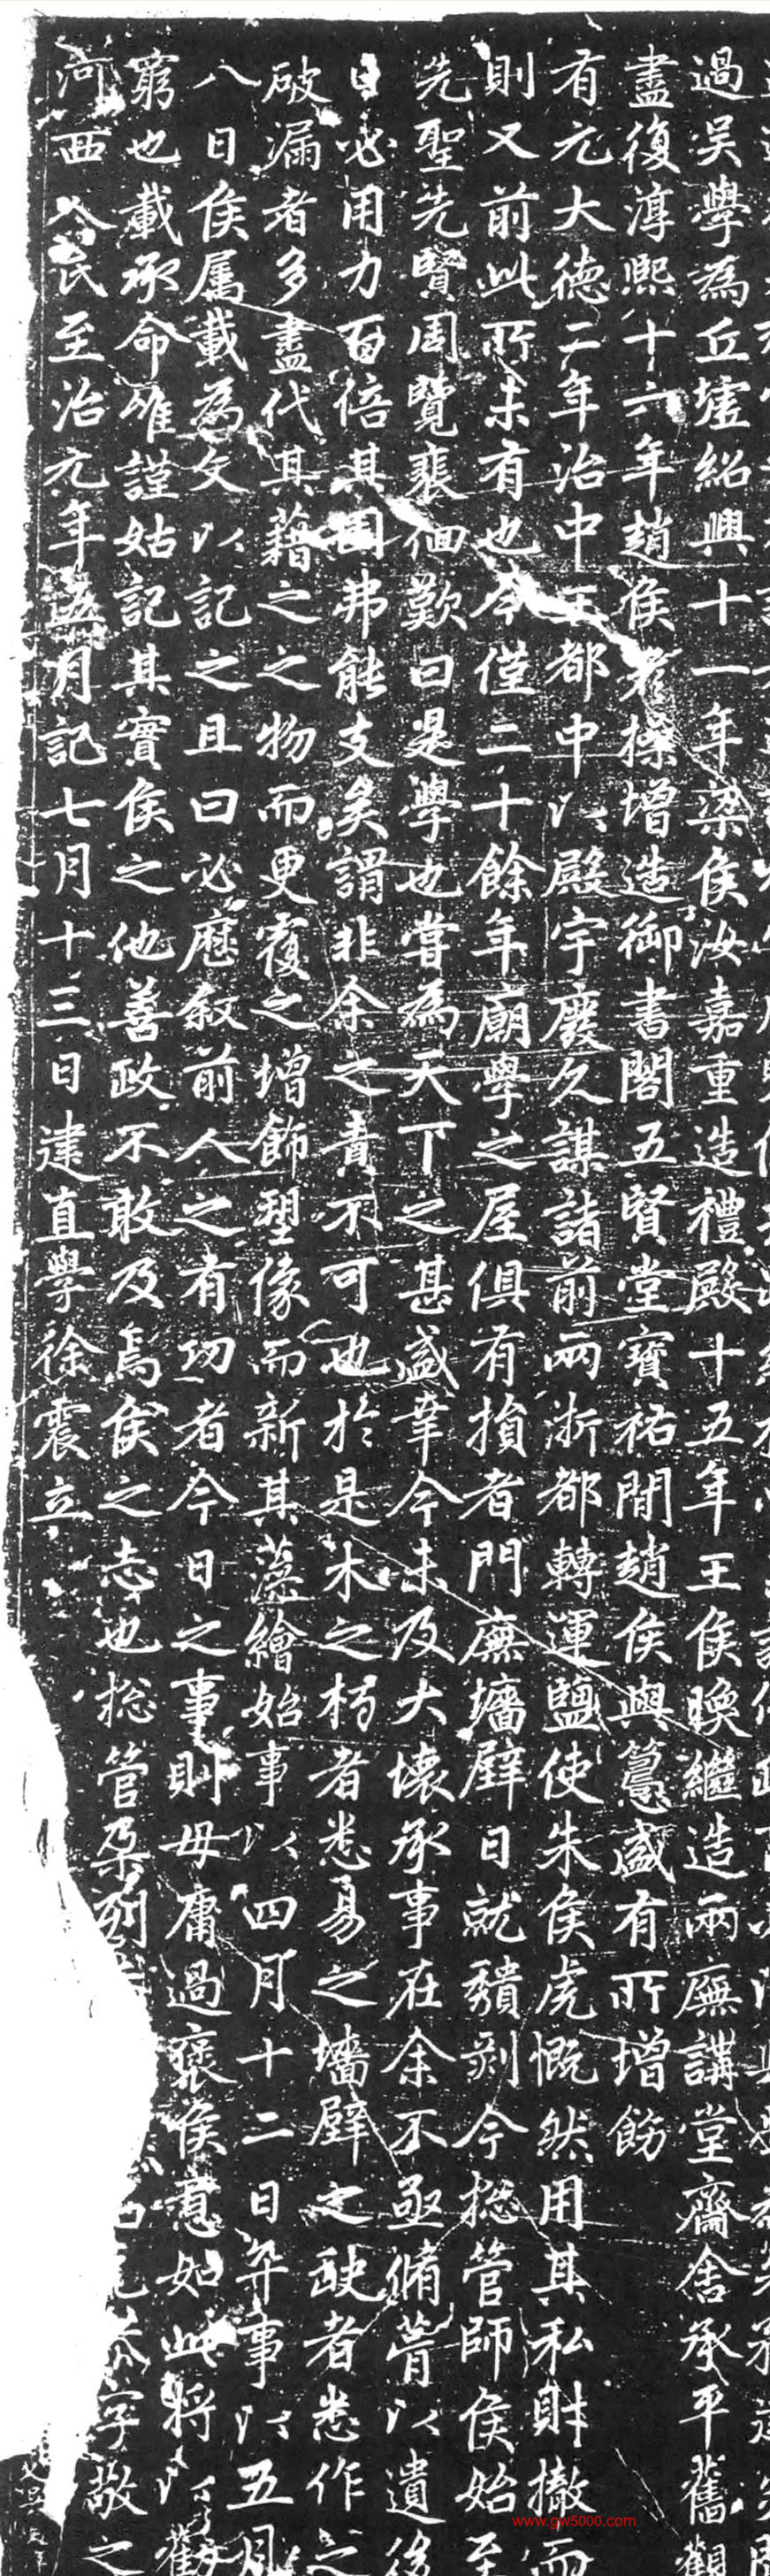 過吳學為丘墟紹興十一年梁侯汝嘉重造禮殿十五年王侯㬇繼造兩廡講堂齋舍承平舊觀
盡復淳熙十六年趙侯彥操增造御書閣五賢堂寶祐間趙侯與𥲅盛有所增飭
有元大德二年治中王都中以殿宇廢久謀諸前兩浙都轉運鹽使朱侯虎慨然用其私財撤而
則又前此所未有也今僅二十餘年廟學之屋俱有損者門廡墻壁日就隤剝今揔管師侯始至
先聖先賢周覽裴佪歎曰是學也嘗為天下之甚盛幸今未及大壞承事在余不亟脩葺以遺後
日必用力百倍其困弗能支矣謂非余之責不可也於是木之朽者悉易之墻壁之缺者悉作之
破漏者多盡代其藉之之物而更覆之增飾聖像而新其藻繪始事以四月十二日卒事以五月
八日侯屬載為文以記之且曰必歷敘前人之有功者今日之事則毋庸過褒侯意如此將以勸
窮也載承命唯謹姑記其實侯之他善政不敢及焉侯之志也揔管朶列克恭字敬之
河西人氏至治元年五月記七月十三日建直學徐震立
www.gw5000.com